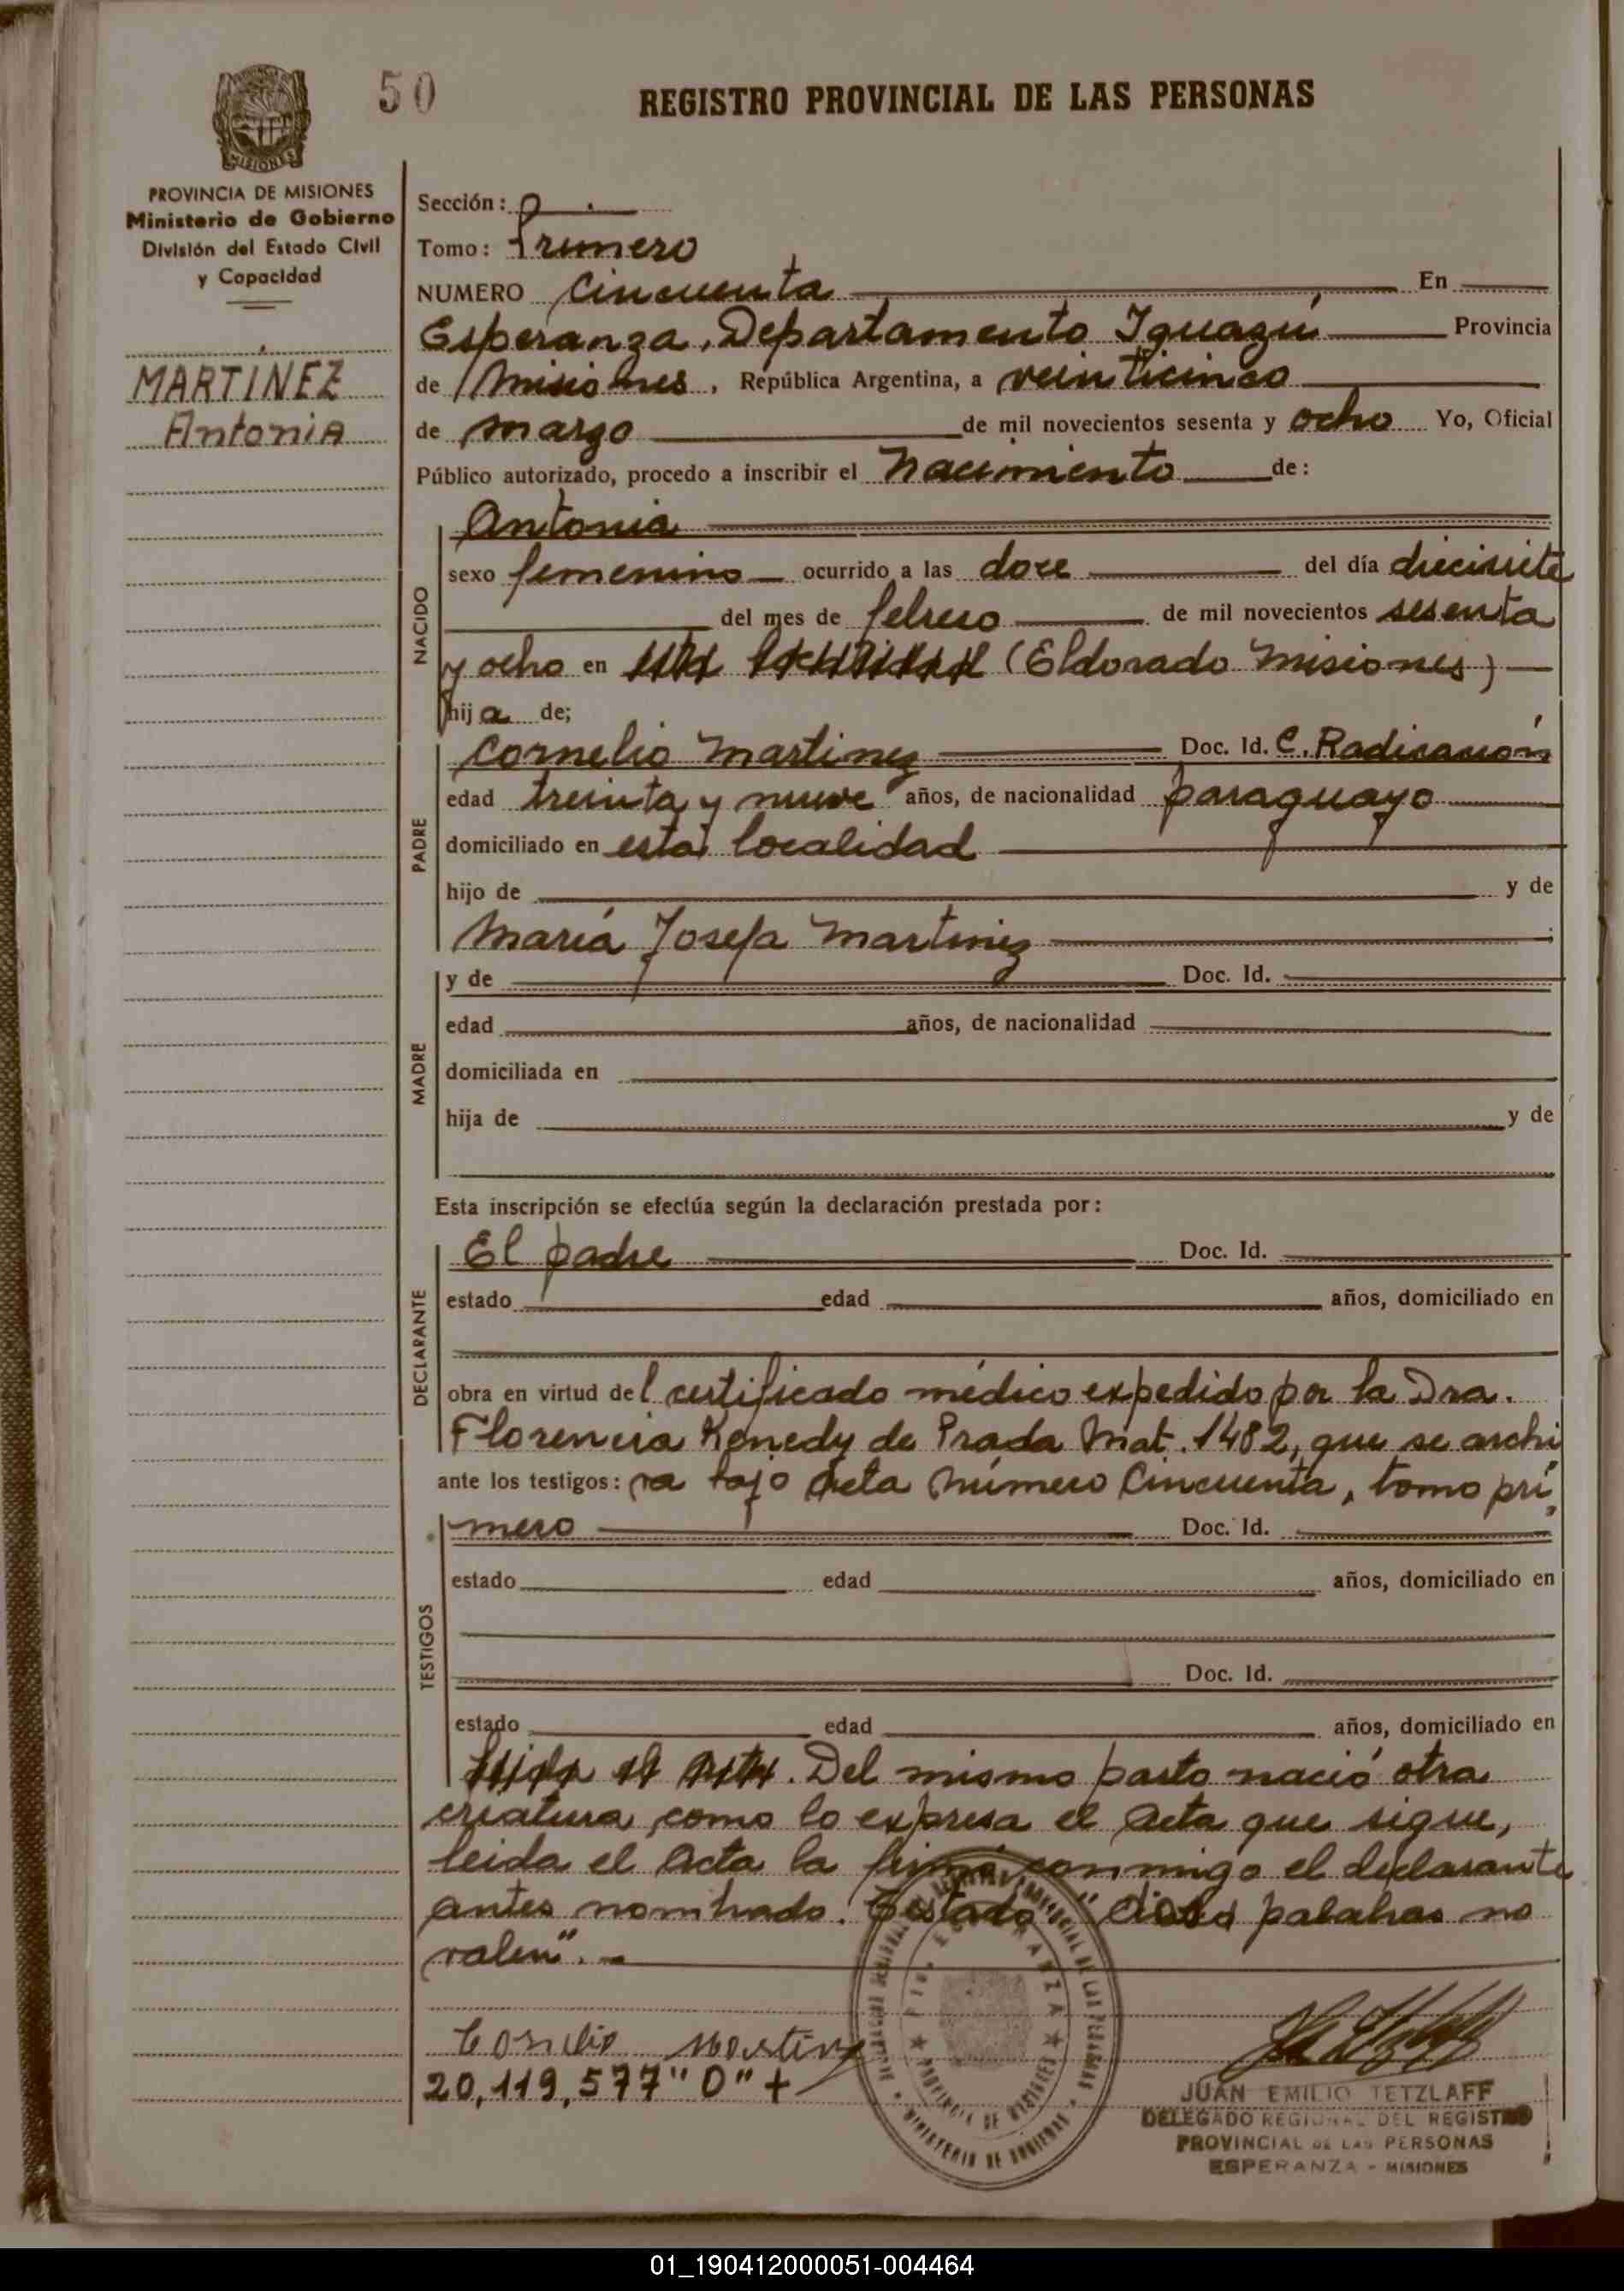 50
REGISTRO PROVINCIAL DE LAS PERSONAS
MISIONES
PROVINCIA DE MISIONES
Ministerio de Gobierno
División del Estado Civil
y Capacidad
MARTÍNEZ
Antonia
Sección:
Tomo: Primero
NUMERO Cincuenta En
Esperanza, Departamento Iguazú Provincia
de Misiones, República Argentina, a veinticinco
de marzo de mil novecientos sesenta y ocho Yo, Oficial
Público autorizado, procedo a inscribir el nacimiento de:
NACIDO
Antonia
sexo femenino ocurrido a las doce del día diecisiete
del mes de febrero de mil novecientos sesenta
y ocho en esta localidad (Eldorado Misiones)
hija de;
PADRE
Cornelio Martinez Doc. Id. C. Radicación
edad treinta y nueve años, de nacionalidad paraguayo
domiciliado en esta localidad
hijo de y de
María Josefa Martinez
MADRE
y de Doc. Id.
edad años, de nacionalidad
domiciliada en
hija de y de
Esta inscripción se efectúa según la declaración prestada por:
DECLARANTE
El padre Doc. Id.
estado edad años, domiciliado en
obra en virtud del certificado médico expedido por la Dra.
Florencia Kenedy de Prada Mat. 1482, que se archi
ante los testigos: va bajo Acta Número Cincuenta, tomo pri
TESTIGOS
mero Doc. Id.
estado edad años, domiciliado en
Doc. Id.
estado edad años, domiciliado en
Leida el Acta. Del mismo parto nació otra
criatura, como lo expresa el Acta que sigue,
leida el Acta la firmó conmigo el declarante
antes nombrado. Testado " palabras no
valen".
Cornelio Martinez
20,119,577 "O" +
ESPERANZA
PROVINCIA DE MISIONES
MINISTERIO DE GOBIERNO
JUAN EMILIO TETZLAFF
DELEGADO REGIONAL DEL REGISTRO
PROVINCIAL DE LAS PERSONAS
ESPERANZA - MISIONES
01_190412000051-004464